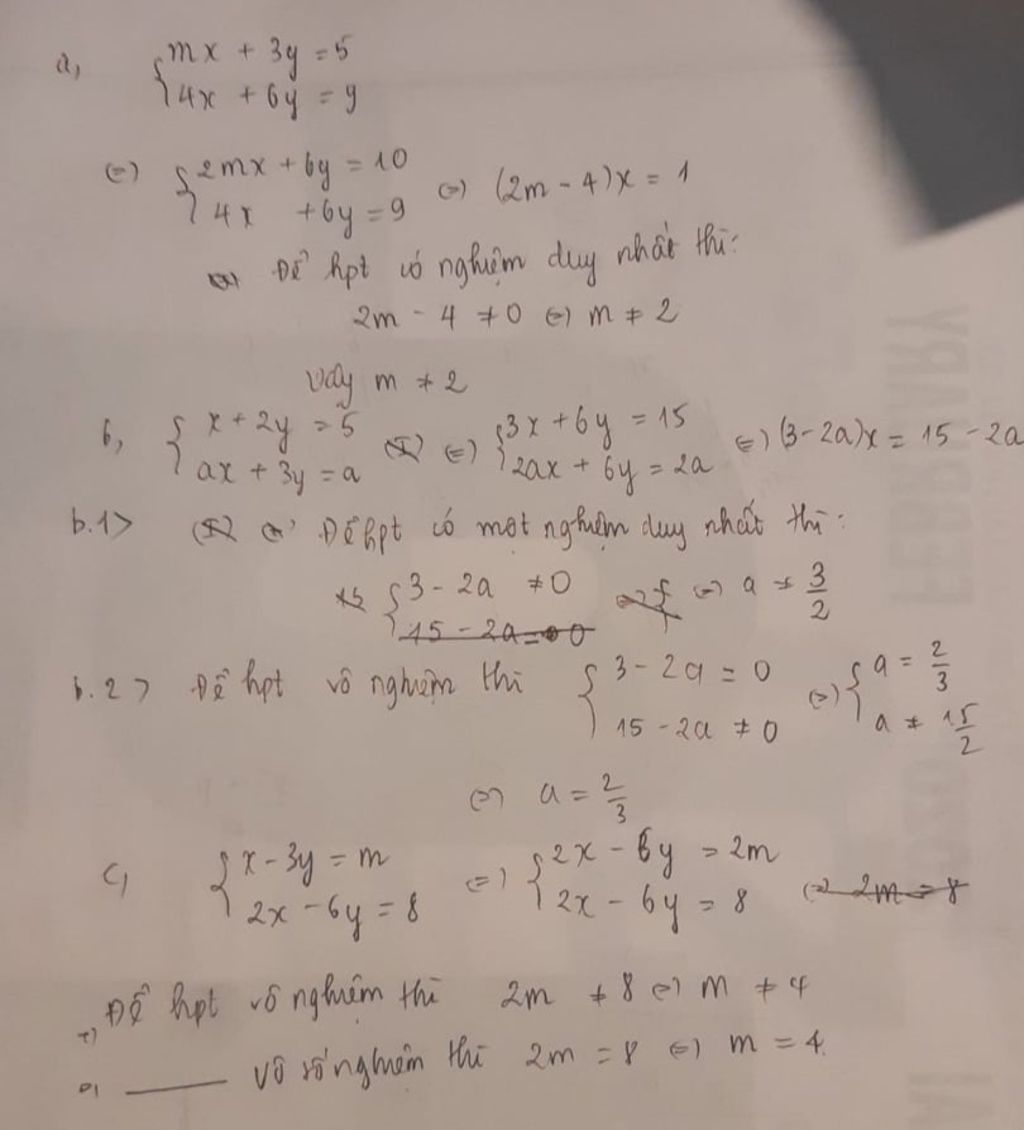 a, { mx + 3y = 5
4x + 6y = 9
(=) { 2mx + 6y = 10
4x + 6y = 9 (=) (2m - 4)x = 1
Để hpt có nghiệm duy nhất thì:
2m - 4 ≠ 0 (=) m ≠ 2
Vậy m ≠ 2
b, { x + 2y = 5
ax + 3y = a (I) (=) { 3x + 6y = 15
2ax + 6y = 2a (=) (3-2a)x = 15 - 2a
b.1> Để hpt có một nghiệm duy nhất thì:
{ 3 - 2a ≠ 0 (=) a ≠ 3/2
15 - 2a = 0
b.2> Để hpt vô nghiệm thì { 3 - 2a = 0
15 - 2a ≠ 0 (=) { a = 2/3
a ≠ 15/2
(=) a = 2/3
c, { x - 3y = m
2x - 6y = 8 (=) { 2x - 6y = 2m
2x - 6y = 8 (=) 2m = 8
+) Để hpt vô nghiệm thì 2m ≠ 8 (=) m ≠ 4
vô số nghiệm thì 2m = 8 (=) m = 4.
FEBRUARY